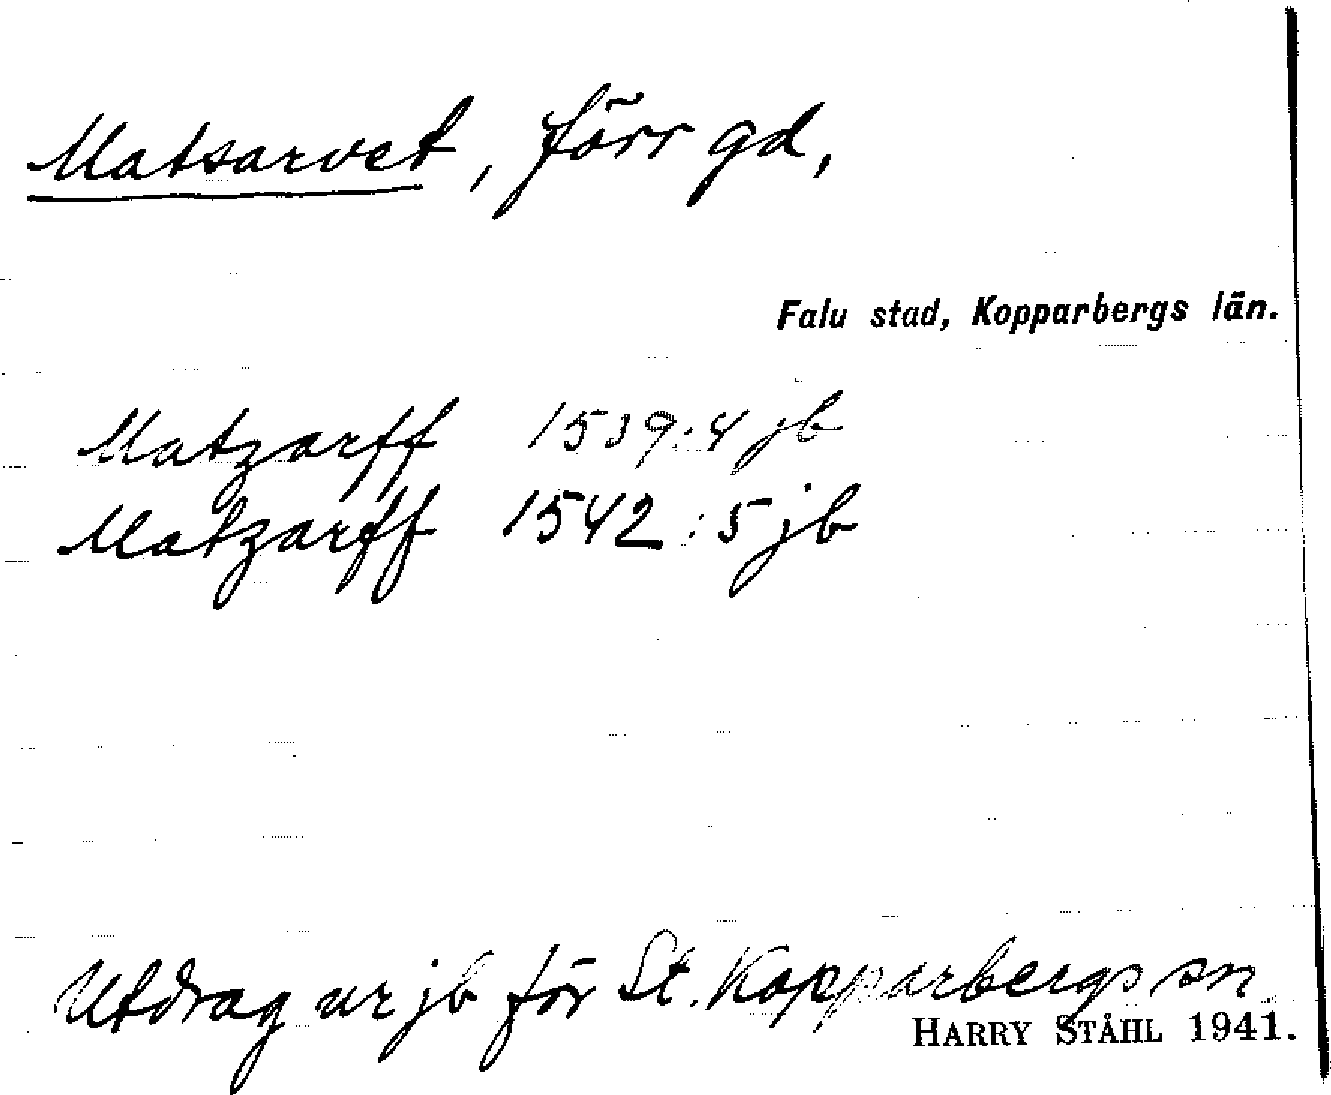 Matsarvet, förr gd,
Falu stad, Kopparbergs län.
Matzarff 1539:4 jb
Matzarff 1542:5 jb
Utdrag ur jb för St. Kopparbergs sn
HARRY STÅHL 1941.